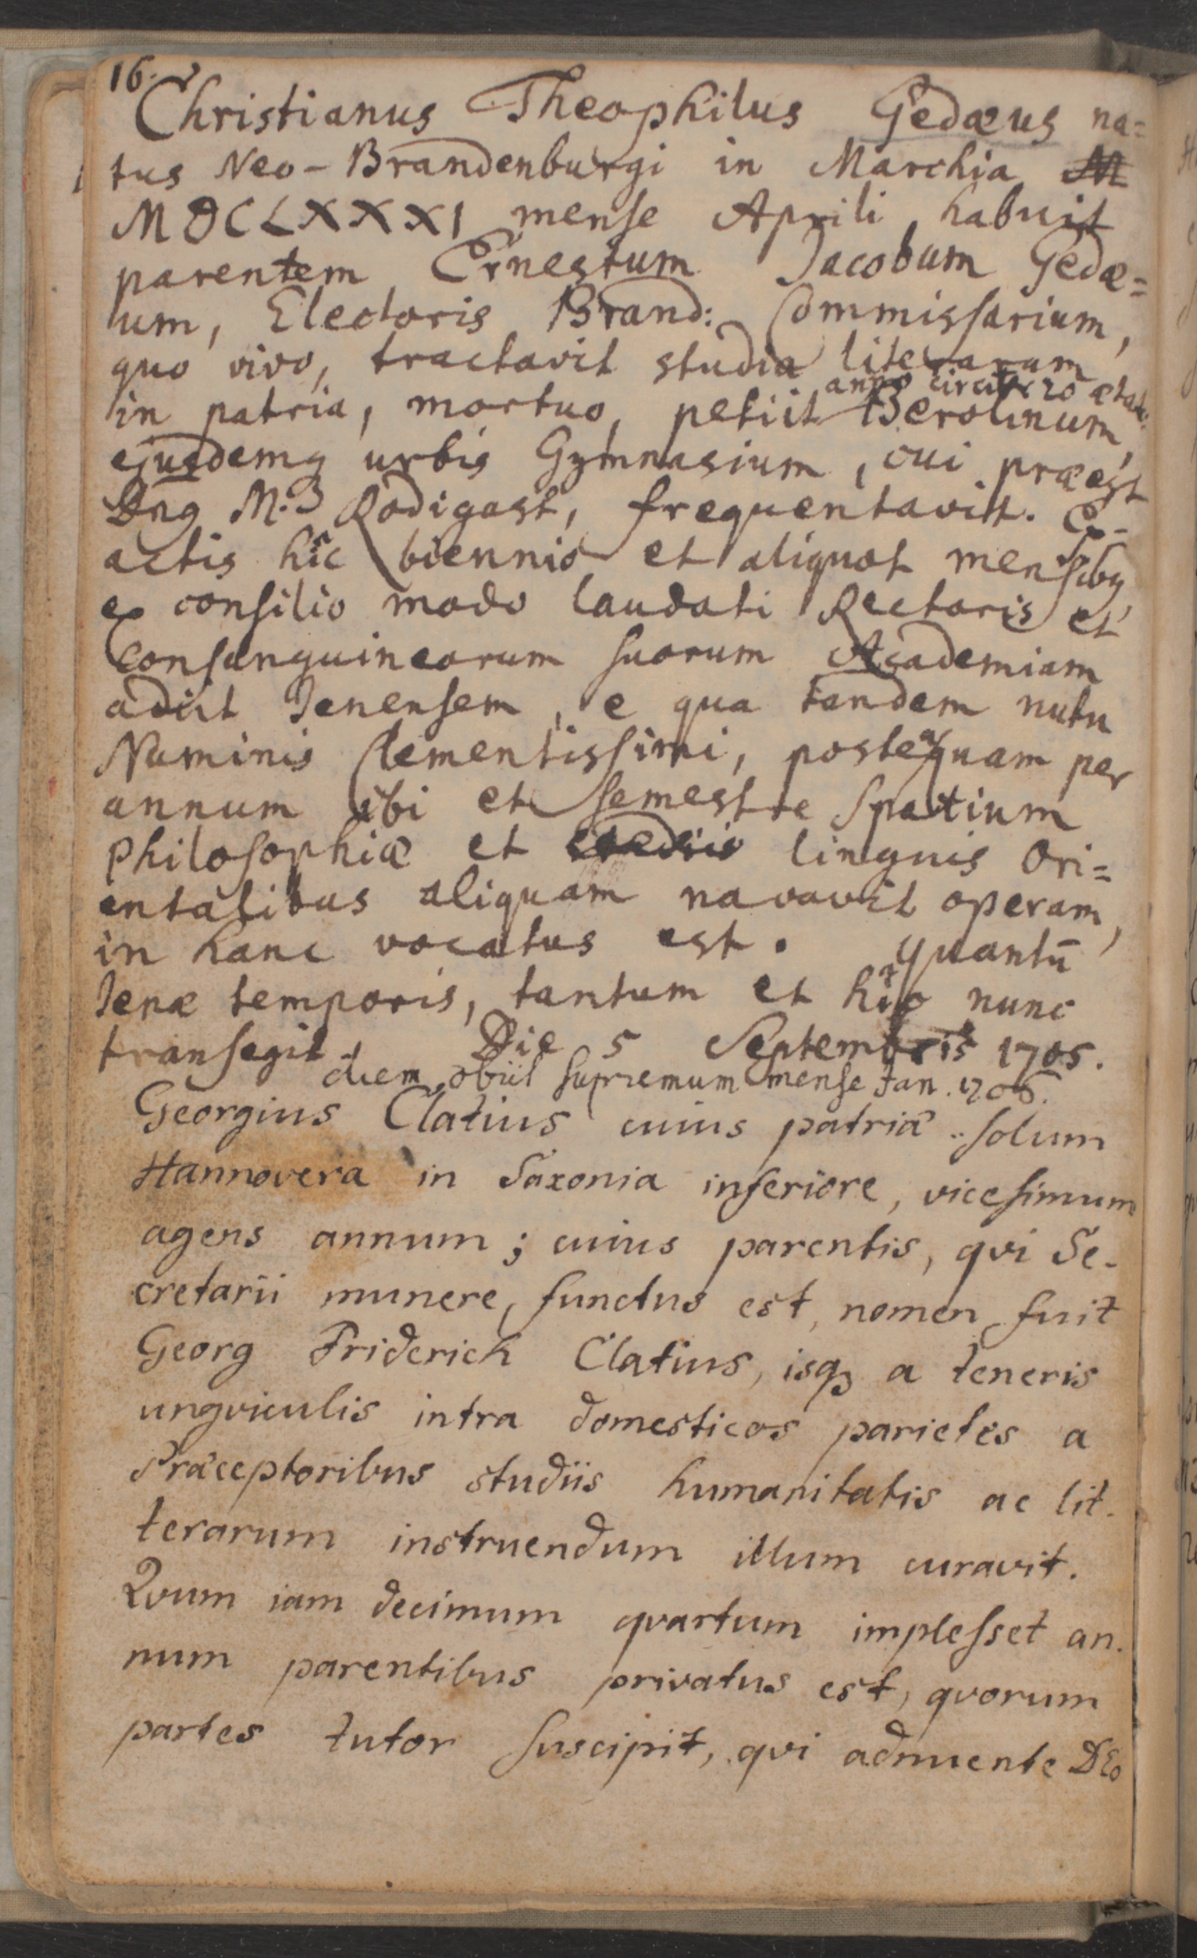 16.
Christianus Theophilus Gedæus na=
tus Neo-Brandenburgi in Marchia
MDCLXXXI mense Aprili habuit
parentem Ernestum Jacobum Gedæ=
um, Electoris Brand: Commissarium,
quo vivo, tractavit studia literarum
anno circiter 20 ætat.
in patria, mortuo, petiit Berolinum,
ejusdemq urbis Gymnasium, cui præest
Dnq M. Rodigast, frequentavit. Ex-
actis hîc biennio et aliquot mensibq
ex consilio modo laudati Rectoris et
Consanguineorum suorum Academiam
adiit Jenensem, e qua tandem nutu
Numinis Clementissimi, postequam per
annum ibi et semestre spatium
Philosophiæ et linguis Ori=
entalibus aliquam navavit operam,
in hanc vocatus est. Quantū
Jenæ temporis, tantum et hic nunc
transegit. Die 5 Septembris 1705.
diem obiit supremum mense Jan. 1706.
Georgius Clatius cuius patriā solum
Hannovera in Saxonia inferiore, vicesimum
agens annum; cuius parentis, qvi Se-
cretarii munere functus est, nomen fuit
Georg Friderich Clatius, isqȝ a teneris
ungviculis intra domesticos parietes a
Præceptoribus studiis humanitatis ac lit-
terarum instruendum illum curavit.
Qvum iam decimum qvartum implesset an-
num parentibus privatus est, qvorum
partes tutor suscipit, qvi adnuente DEo